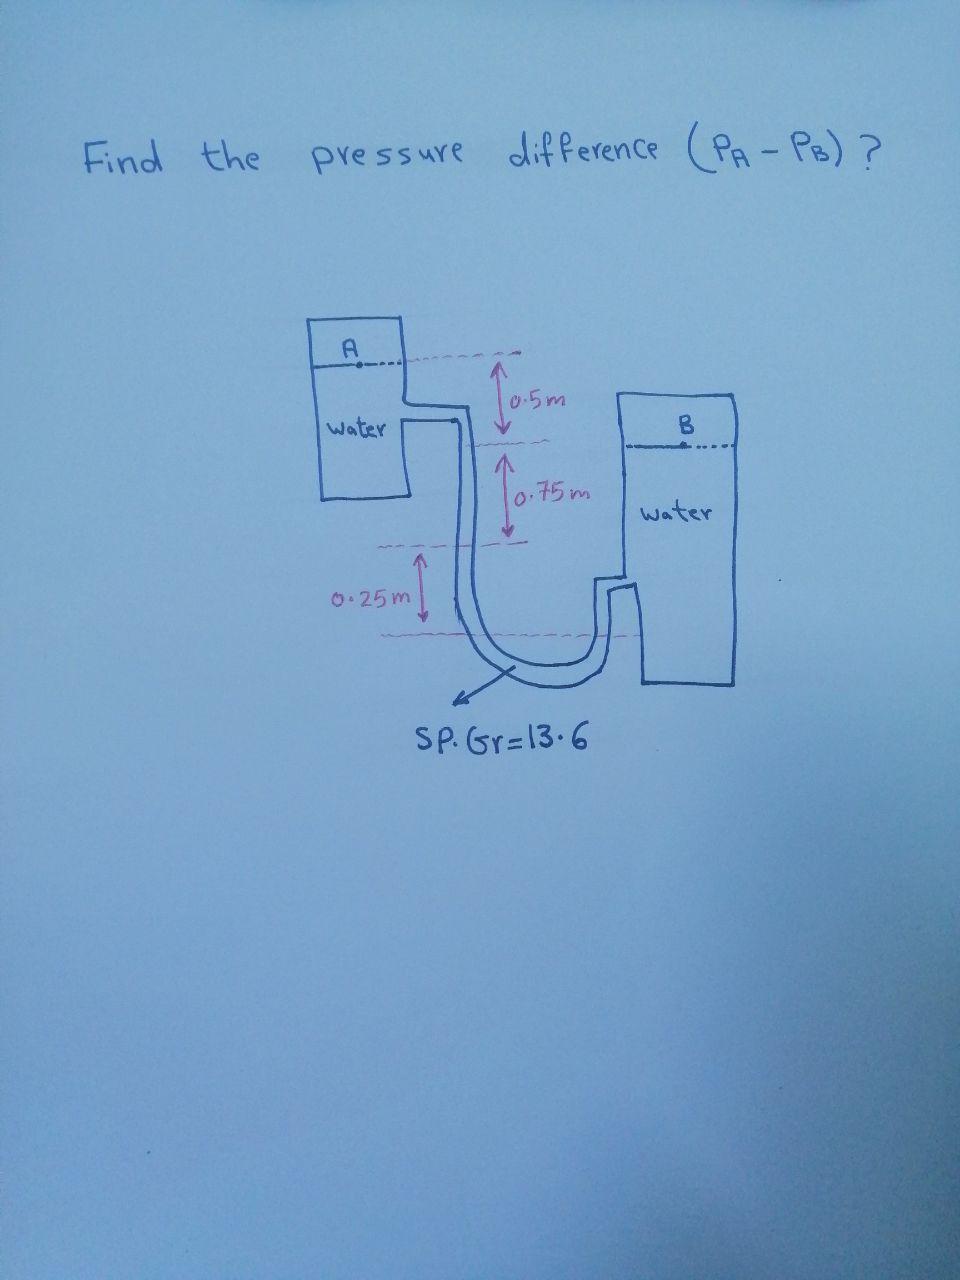 Find the pressure difference (PA - PB) ?
A
0.5m
B
water
0.75m
water
0.25m
SP. Gr=13.6